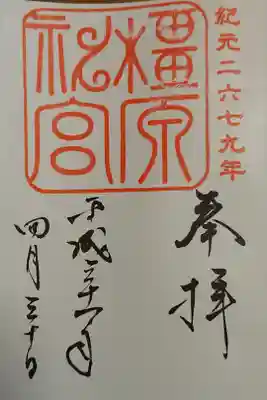 紀元二六七九年
奉拝
橿原
神宮
平成三十一年
四月三十日